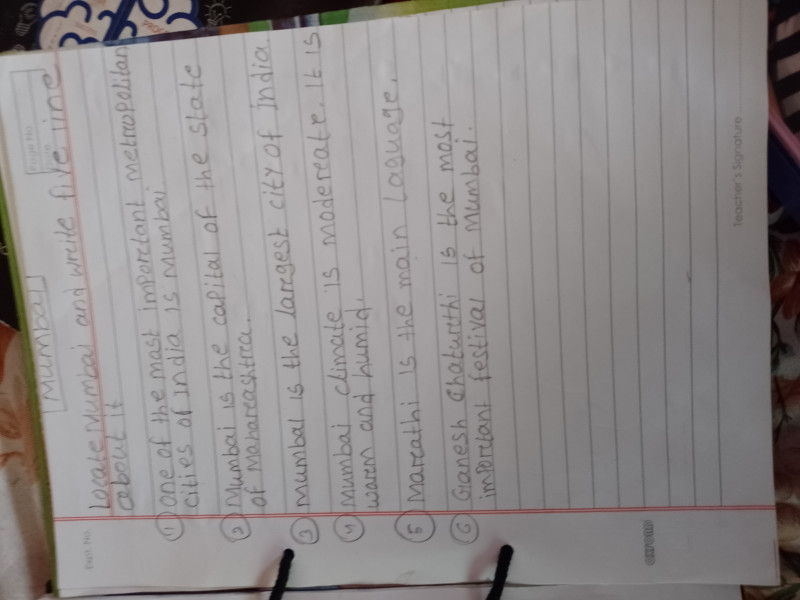 Page No.
Date
Expt. No.
Mumbai
Locate Mumbai and write five line
about it
① One of the most important metropolitan
cities of India is Mumbai
② Mumbai is the capital of the state
of Maharashtra.
③ Mumbai is the largest city of India
④ Mumbai climate is modereate. It is
warm and humid.
⑤ Marathi is the main laguage.
⑥ Ganesh Chaturthi is the most
important festival of Mumbai.
Teacher's Signature